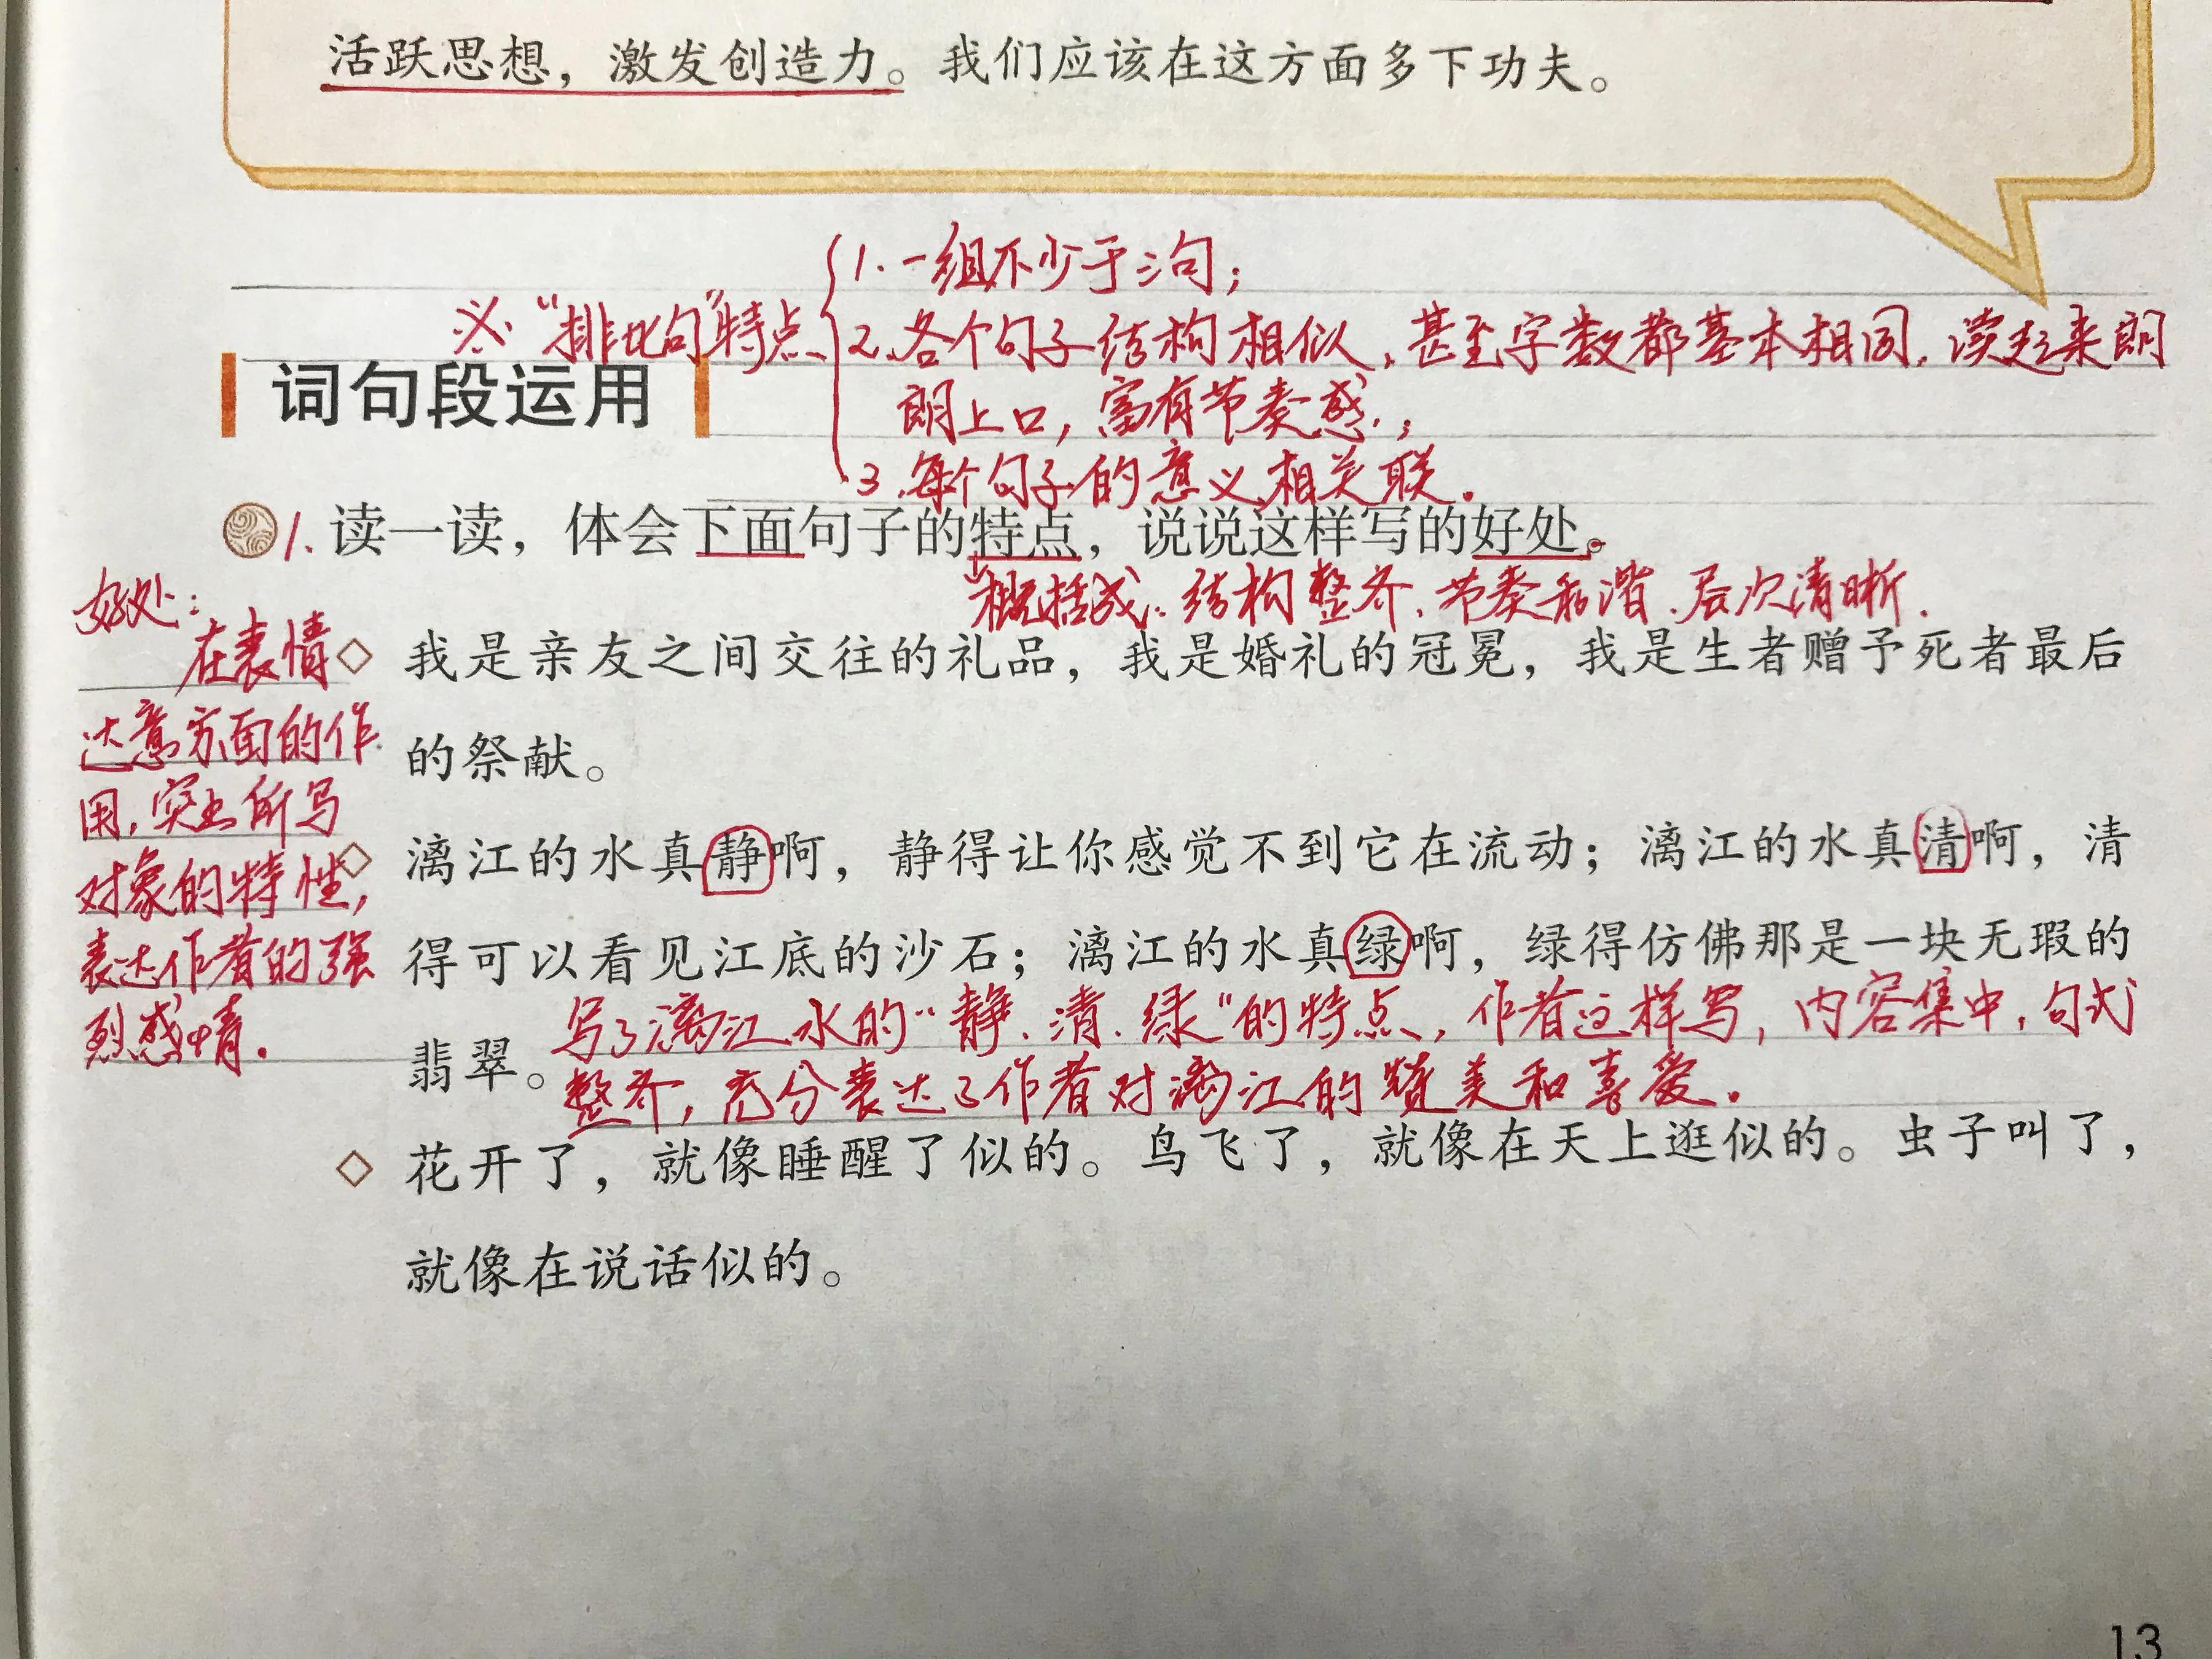 活跃思想，激发创造力。我们应该在这方面多下功夫。
1. 一组不少于三句；
※ “排比句”特点
2. 各个句子结构相似，甚至字数都基本相同，读起来朗
朗上口，富有节奏感；
3. 每个句子的意义相关联。
词句段运用
1. 读一读，体会下面句子的特点，说说这样写的好处。
概括成：结构整齐、节奏和谐、层次清晰.
好处：
在表情
达意方面的作
用，突出所写
对象的特性，
表达作者的强
烈感情。
◇ 我是亲友之间交往的礼品，我是婚礼的冠冕，我是生者赠予死者最后
的祭献。
◇ 漓江的水真静啊，静得让你感觉不到它在流动；漓江的水真清啊，清
得可以看见江底的沙石；漓江的水真绿啊，绿得仿佛那是一块无瑕的
翡翠。
写了漓江水的“静、清、绿”的特点，作者这样写，内容集中，句式
整齐，充分表达了作者对漓江的赞美和喜爱。
◇ 花开了，就像睡醒了似的。鸟飞了，就像在天上逛似的。虫子叫了，
就像在说话似的。
13